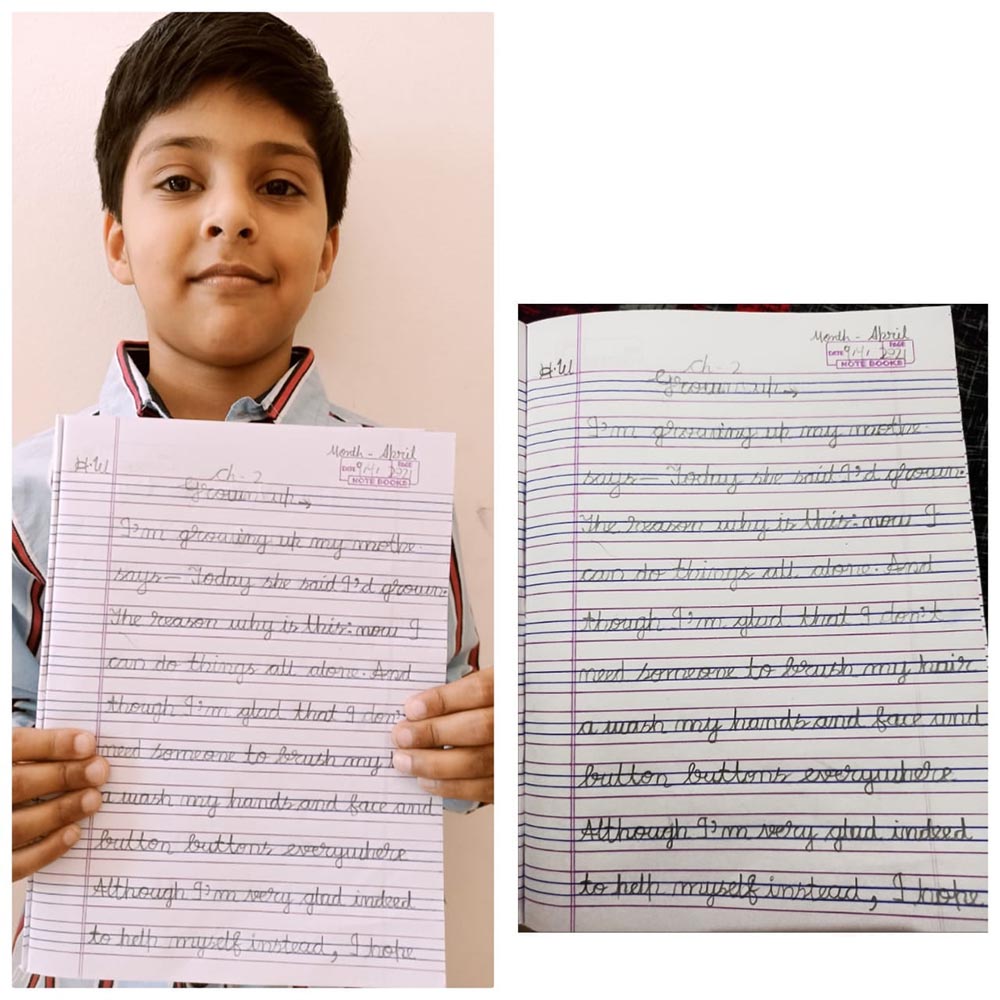 Month - April
DATE PAGE
NOTE BOOKS
H.W
Ch-2
Grown up →
I'm growing up my mothe
says— Today she said I'd grown.
The reason why is this: now I
can do things all alone. And
though I'm glad that I don't
need someone to brush my
a wash my hands and face and
button buttons everywhere
Although I'm very glad indeed
to help myself instead, I hope
Month - April
DATE PAGE
NOTE BOOKS
H.W
Ch-2
Grown up →
I'm growing up my mothe
says— Today she said I'd grown.
The reason why is this: now I
can do things all alone. And
though I'm glad that I don't
need someone to brush my hair
a wash my hands and face and
button buttons everywhere.
Although I'm very glad indeed
to help myself instead, I hope